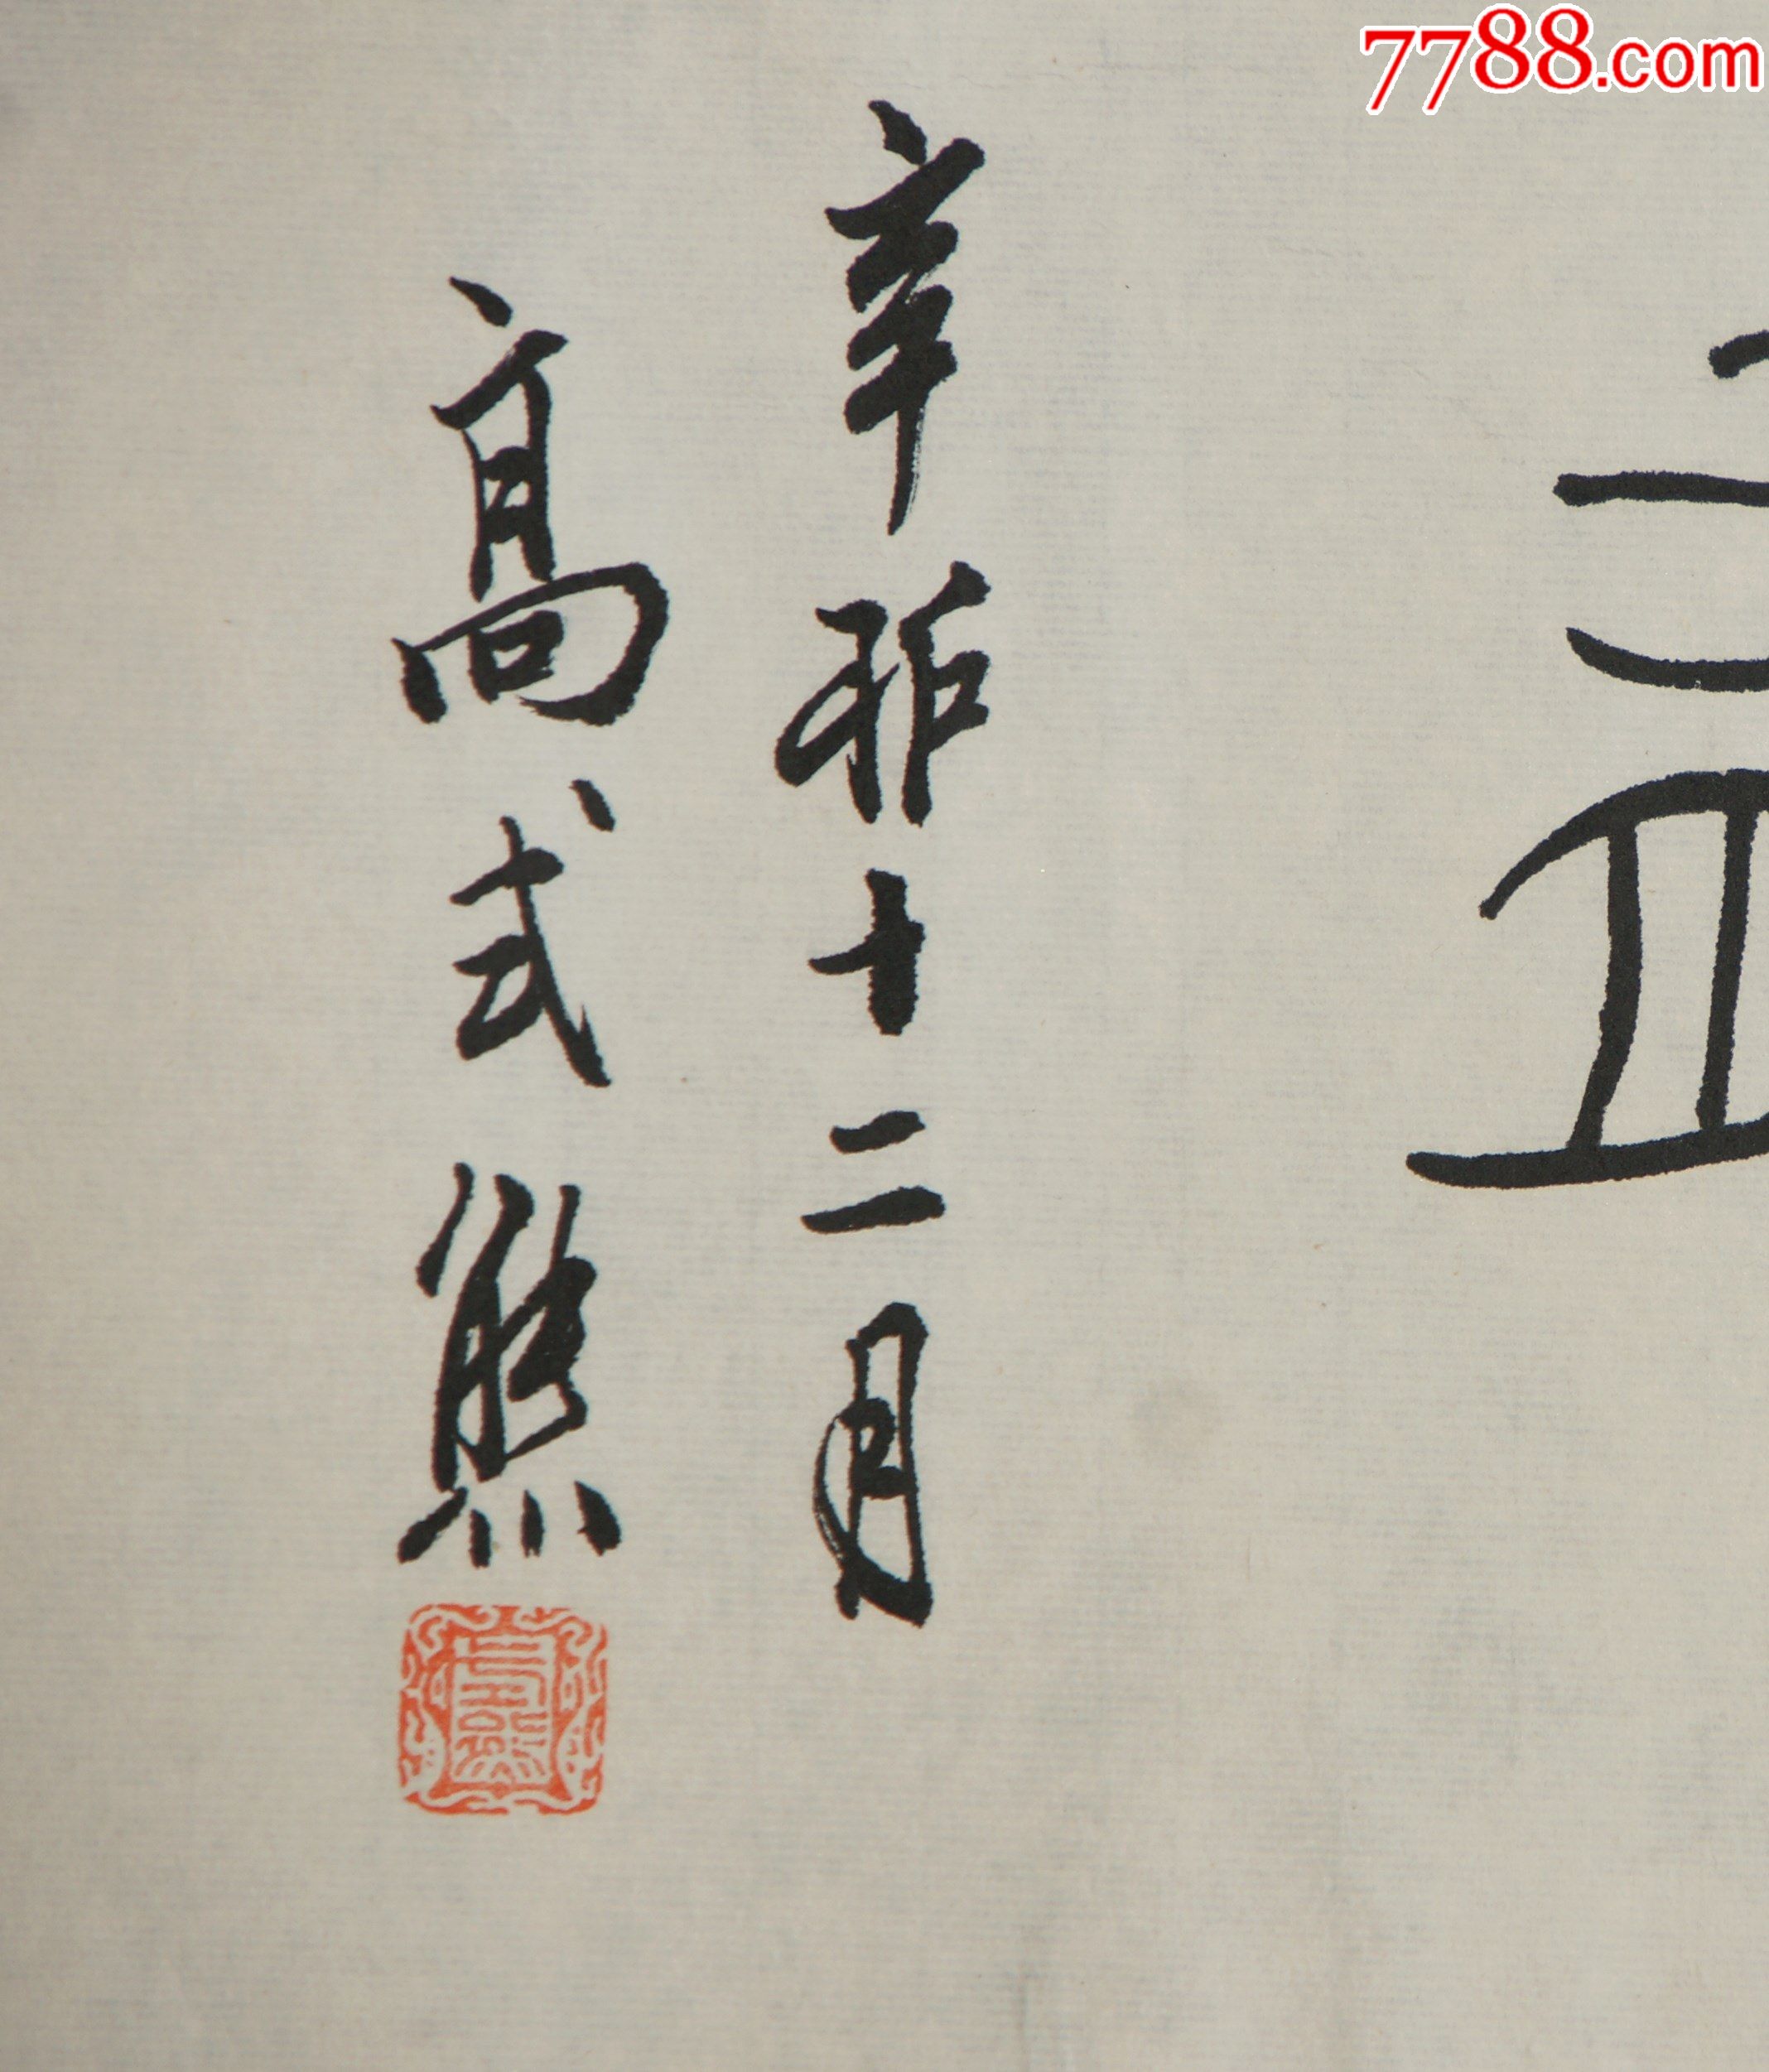 7788.com
辛卯十二月
高式熊